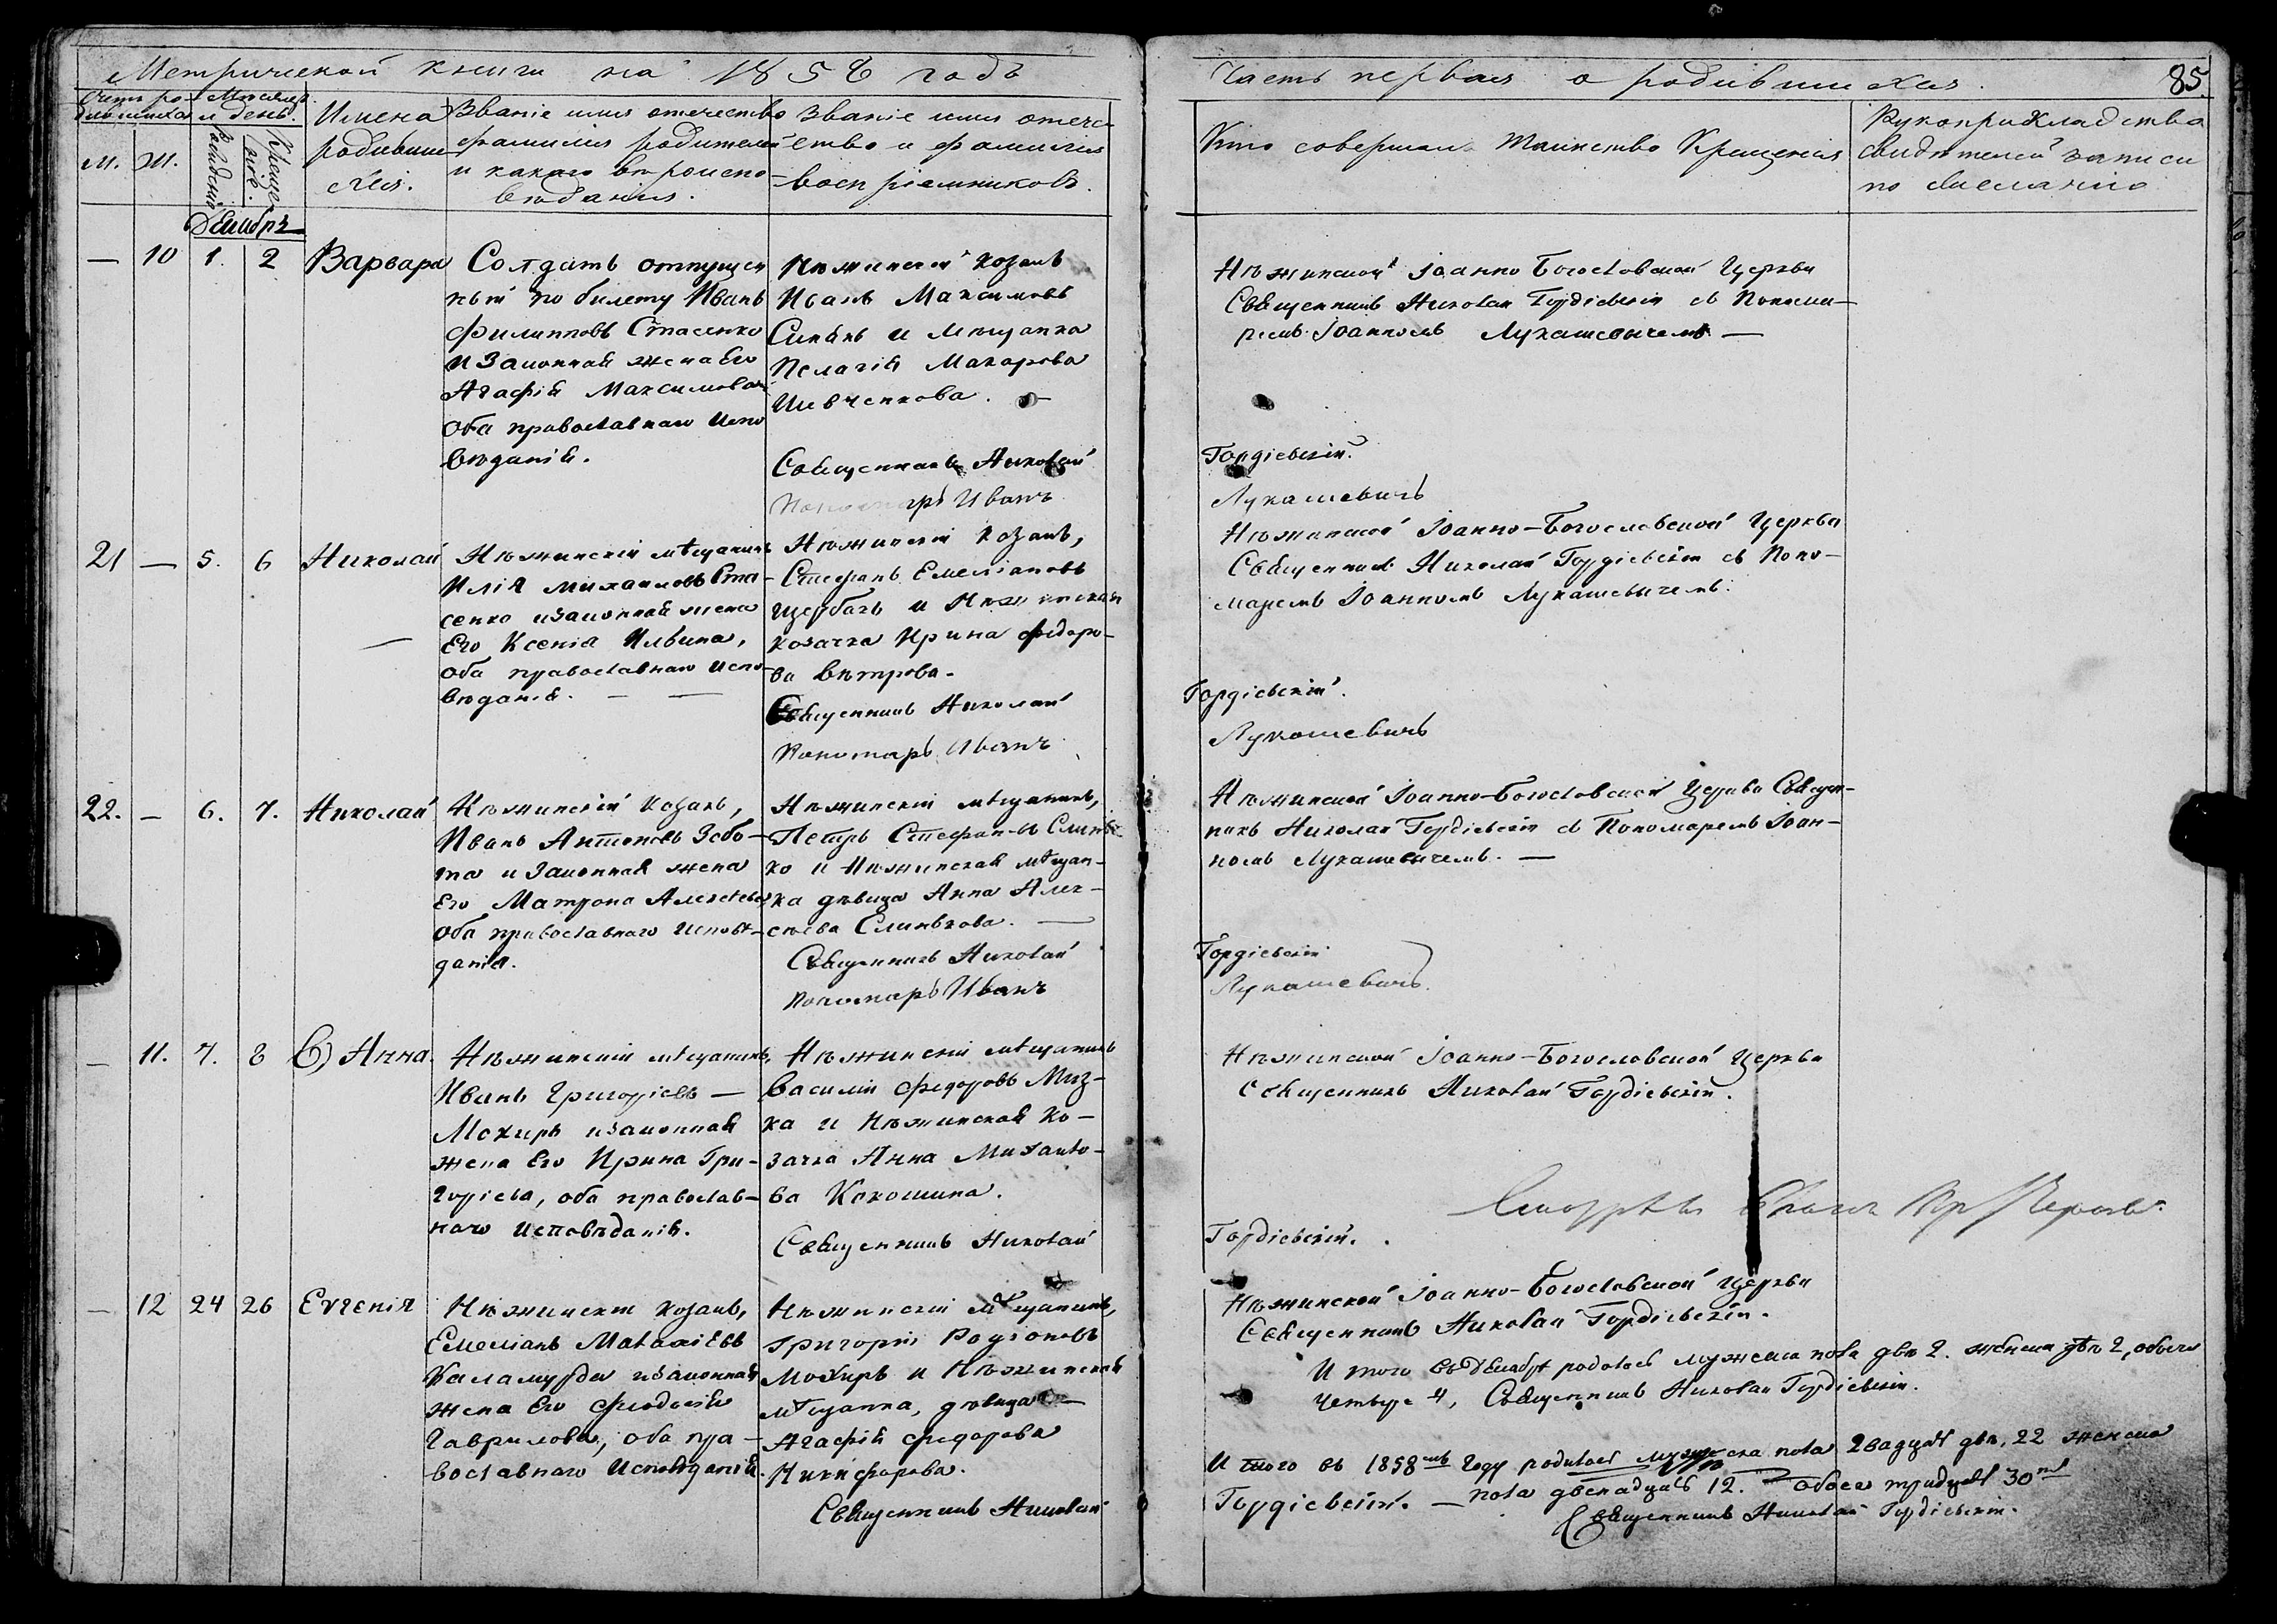 Метрической книги на 1858 годъ
Часть первая о родившихся.
85
Счетъ родившихся
Мѣсяцъ и день.
М.
Ж.
Рожденія
Крещенія.
Имена
родивших
ся.
Званіе имя отчество
фамилія родителей
и какого вѣроиспо-
вѣданія.
Званіе имя отече-
ство и фамилія
воспріемниковъ.
Кто совершалъ Таинство Крещенія
Рукоприкладства
свидѣтелей записи
по желанію
Декабрь
— 10 1. 2 Варвара
Солдатъ отпущен
ный по билету Иванъ
Филипповъ Стасенко
и Законная жена Его
Агафія Максимова
Оба православнаго Испо
вѣданія.
Нѣжинскій козакъ
Иванъ Максимовъ
и Мѣщанка
Пелагія Макарова
Шевченкова. —
Священникъ Николай
Пономарь Иванъ
Нѣжинской Іоанно Богословской Церкви
Священникъ Николай Гордіевскій съ Понома-
ремъ Іоанномъ Лукашевичемъ —
Гордіевскій.
Лукашевичъ
21 — 5. 6 Николай
Нѣжинскій мѣщанинъ
Илія Михайловъ Ста-
сенко и Законная жена
Его Ксенія Ильина,
оба православнаго испо-
вѣданія. — —
Нѣжинскій козакъ,
Стефанъ Емеліановъ
Щербакъ и Нѣжинская
козачка Ирина Федоро-
ва Вѣтрова.
Священникъ Николай
Пономарь Иванъ
Нѣжинской Іоанно-Богословской Церкви
Священникъ Николай Гордіевскій съ Поно-
маремъ Іоанномъ Лукашевичемъ.
Гордіевскій.
Лукашевичъ
22. — 6. 7. Николай
Нѣжинскій козакъ,
Иванъ Антоновъ
и Законная жена
Его Матрона Алексѣева
Оба православнаго Исповѣ-
данія.
Нѣжинскій мѣщанинъ,
Петръ Стефановъ Слинь-
ко и Нѣжинская мѣщан-
ка дѣвица Анна Алек-
сѣева Слинькова. —
Священникъ Николай
Пономарь Иванъ
Нѣжинской Іоанно-Богословской Церкви Священ-
никъ Николай Гордіевскій съ Пономаремъ Іоан-
номъ Лукашевичемъ. —
Гордіевскій
Лукашевичъ.
— 11. 7. 8 Анна.
Нѣжинскій мѣщанинъ,
Иванъ Григоріевъ —
Мохиръ и Законная
жена Его Ирина Гри-
горіева, оба православ-
наго Исповѣданія.
Нѣжинскій мѣщанинъ
Василій Федоровъ
и Нѣжинская Ко-
зачка Анна Михайло-
ва Кокошина.
Священникъ Николай
Нѣжинской Іоанно-Богословской Церкви
Священникъ Николай Гордіевскій.
Гордіевскій.
— 12 24 26 Евгенія
Нѣжинскій козакъ,
Емеліанъ
Каламурда и Законная
жена Его Феодосія
Гаврилова, оба пра-
вославнаго Исповѣданія.
Нѣжинскій Мѣщанинъ,
Григорій Родіоновъ
Мохиръ и Нѣжинская
мѣщанка, дѣвица —
Агафія Федорова
Никифорова.
Священникъ Николай
Нѣжинской Іоанно-Богословской Церкви
Священникъ Николай Гордіевскій.
И того въ Декабрѣ родилось мужеска пола два 2. женска двѣ 2, обоего
Четыре 4, Священникъ Николай Гордіевскій.
И того въ 1858мъ Году родилось мужеска пола двадцать два, 22 женска
пола двенадцать 12. обоего тридцать
Гордіевскій. —
Священникъ Николай Гордіевскій.